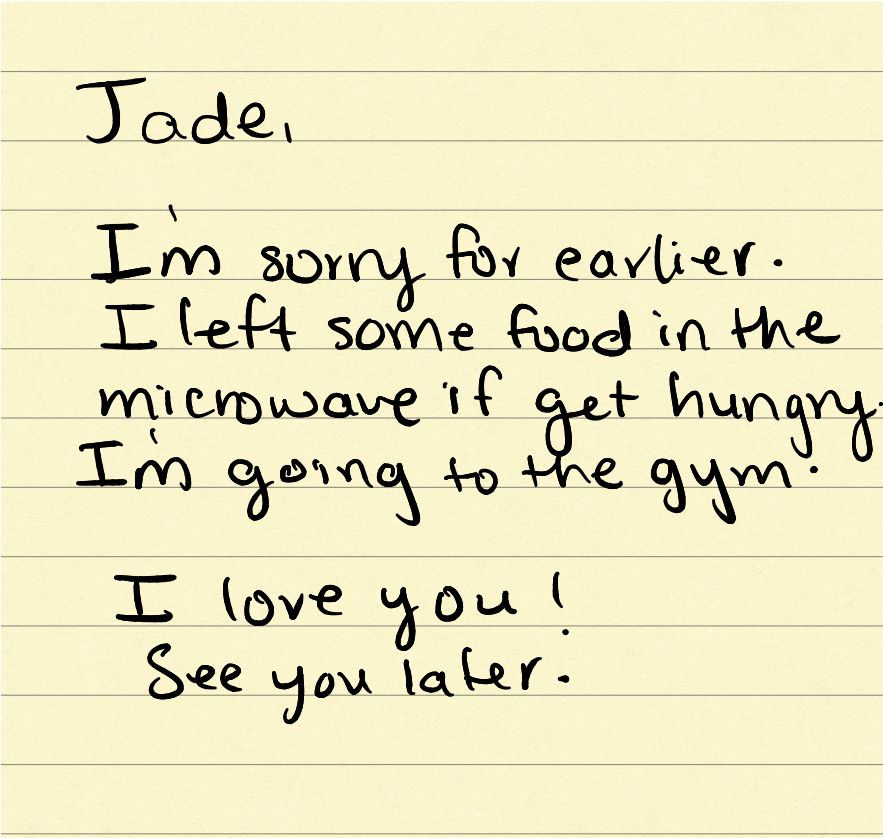 Jade,
I'm sorry for earlier.
I left some food in the
microwave if get hungry.
I'm going to the gym.
I love you!
See you later.